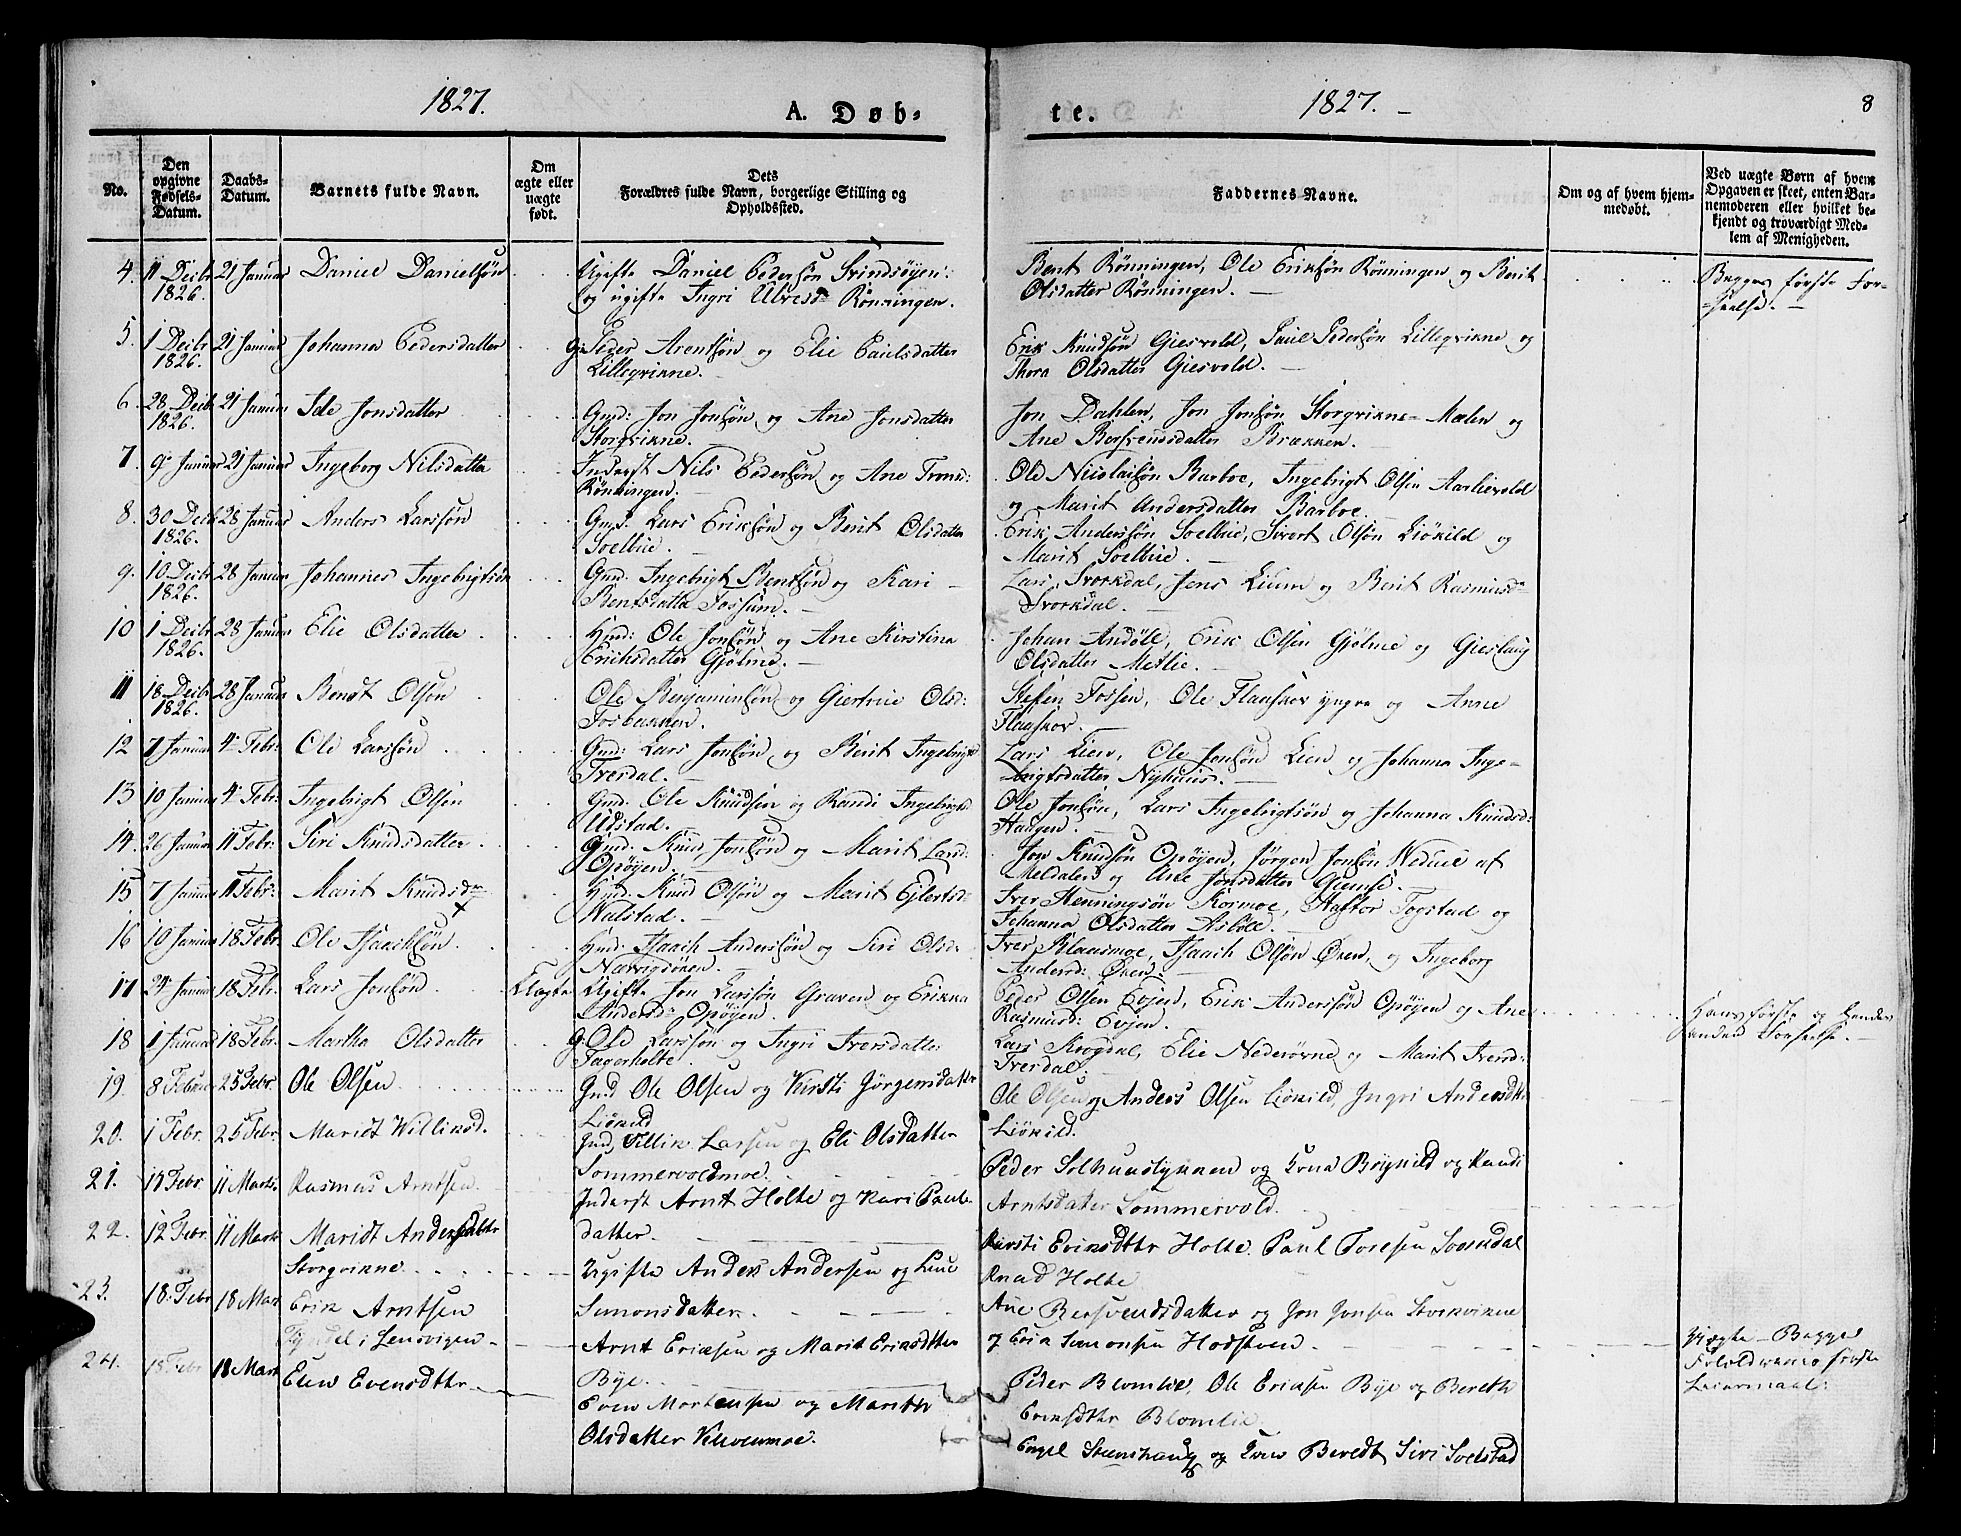 1827. A. Døb-
te. 1827. - 8
No.
Den opgivne Fødsels-Datum.
Daabs-Datum.
Barnets fulde Navn.
Om ægte eller uægte født.
Dets Forældres fulde Navn, borgerlige Stilling og Opholdssted.
Faddernes Navne.
Om og af hvem hjemmedøbt.
Ved uægte Børn af hvem Opgaven er skeet, enten Barnemoderen eller hvilket bekjendt og troværdigt Medlem af Menigheden.
4. 11 Decbr 1826. 21 Januar Daniel Danielsøn
Ugifte Daniel Pedersøn Svindsøyen
og ugifte Ingri Rønningen.
Bent Rønningen, Ole Eriksøn Rønningen og Berit
Olsdatter Rønningen. -
Begges første For-
seelse. -
5. 1 Decbr 1826. 21 Januar Johanna Pedersdatter
Peder Arentsøn og Elie Paulsdatter
Lilleqvikne. -
Erik Knudsøn Giesvold, Paul Pedersøn Lilleqvikne og
Thora Olsdatter Giesvold. -
6. 28 Decbr 1826. 21 Januar Jonsdatter
Gmd: Jon Jonsøn og Ane Jonsdatter
Storqvikne.
Jon Dahlen, Jon Jonsøn Storqvikne-Mælen og
Ane Bersvendsdatter Brækken. -
7. 9 Januar 21 Januar Ingeborg Nilsdatter
Inderst Nils Pedersøn og Ane Trond:
Rønningen. -
Ole Nicolaisøn Barboe, Ingebrigt Olsen Aarlivold
og Marit Andersdatter Barboe.
8. 30 Decbr 1826. 28 Januar Anders Larssøn
Gmd: Lars Eriksøn og Berit Olsdatter
Soelbue. -
Erik Anderssøn Soelbue, Sivert Olsøn Liøkild og
Marit Soelbue. -
9. 10 Decbr 1826. 28 Januar Johannes Ingebrigtsøn
Gmd: Ingebrigt Bentsøn og Kari -
Bentsdatter Fossum. -
Lars Svorkdal, Jens Lium og Berit Rasmusd-
Svorkdal. -
10 1 Decbr 1826. 28 Januar Elie Olsdatter
Hmd: Ole Jonsøn og Ane Kirstina
Erichsdatter Gjølme. -
Johan Andøll, Erik Olsen Gjølme og Gieslaug
Olsdatter Metlie. -
11 18 Decbr 1826. 28 Januar Bendt Olsøn
Ole Benjaminsøn og Giertrue Olsd:
Fosbakken.
Stefen Fossen, Ole Flaaskov yngre og Anne
Flaaskov. -
12 7 Januar 4 Febr. Ole Larssøn
Gmd: Lars Jonsøn og Berit Ingebrigtsd
Tverdal. -
Lars Lien, Ole Jonsøn Lien og Johanna Inge-
brigtsdatter Nyhuus. -
13 10 Januar 4 Febr. Ingebrigt Olsen
Gmd: Ole Knudsen og Randi Ingebrigtsd
Udstad. -
Ole Jonsøn, Lars Ingebrigtsøn og Johanna Knudsd:
Haugen. -
14. 26 Januar 11 Febr: Siri Knudsdatter
Gmd: Knud Jonsøn og Marit Larsd:
Opøyen. -
Jon Knudsøn Opøyen, Jørgen Jonsøn af
Meldalen og Ane Jonsdatter Giemse. -
15 7 Januar 11 Febr: Marit Knudsd
Hmd: Knud Olsøn og Marit Ejlertsd-
Walstad. -
Iver Henningsøn Kormoe, Haftor Togstad og
Johanna Olsdatter Asbøll. -
16 10 Januar 18 Febr. Ole Isaachsøn
Hmd: Isaach Anderssøn og Siri Olsd:
Nærvigsøren.
Iver Klaasmoe, Isaach Olsøn Øren, og Ingeborg
Andersd: Øren. -
17 24 Januar 18 Febr. Lars Jonsøn
Uægte
Ugifte Jon Larssøn Graven og Erikka
Andersd: Opøyen. -
Peder Olsen Evjen, Erik Anderssøn Opøyen og Ane
Rasmusd: Evjen.
Hans første og hendes
anden Forseelse. -
18 1 Januar 18 Febr. Martha Olsdatter
Ole Larssøn og Ingri Iversdatter
Fagerholte. -
Lars Krogdal, Elie Nederøvne og Marit Trond:
Tverdal.
19 8 Februar 25 Febr. Ole Olsen
Gmd Ole Olsen og Kirsti Jørgensdatter
Liøkild
Ole Olsen og Anders Olsen Liøkild, Ingri Andersdttr
Liøkild.
20. 1 Febr. 25 Febr. Maridt Williksd.
Gmd, Villik Larsen og Eli Olsdatter
Sommervoldmoe.
Peder Solhuustyknen og Brynild og Randi
Arntsdatter Sommervold.
21. 11 Febr. 11 Marts. Rasmus Arntsen
Inderst Arnt Holte og Kari Paul-
datter.
Kirsti Eriksdttr Holte. Paul Toresen Songdal
Knud Holte
22. 12 Febr. 11 Marts Maridt Andersdatter
Storqvikne
Ugifte Anders Andersen og
Simonsdatter.
Ane Bersvendsdatter og Jon Jonsen Storkvikne
og Erik Simonsen Hodsteen.
23. 18 Febr 18 Marts Erik Arntsen
i Lensvigen
Arnt Eriksen og Marit Eriksdtter
Bye.
Peder Blomlie, Ole Eriksen Bye og Bereth
Evensdttr Blomlie.
Uægte - Begges
første
Leiermaal:
24. 18 Febr 18 Marts Elen Evensdttr
Even Mortensen og Marith
Olsdatter Kluvenmoe.
Engel og Beredt, Siri Soelstad